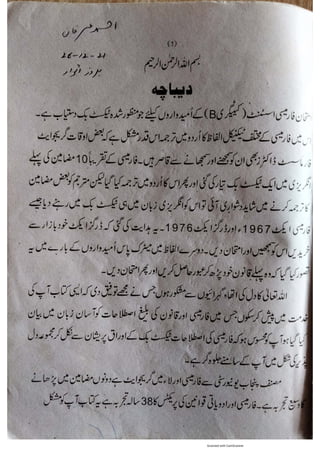 احمد شیر خان
26-12-21
بروز اتوار
(1)
بسم اللہ الرحمن الرحیم
دیباچہ
امتحان فارمیسی اسسٹنٹ (کیٹیگری B) کے امیدواروں کیلئے جو منظور شدہ ٹیکسٹ بک دستیاب ہے۔
اس میں فارمیسی کے مختلف ٹیکنیکل الفاظ کا اردو میں ترجمہ اس قدر مشکل ہے کہ بعض اوقات گریجوایٹ
فارماسسٹ ڈاکٹرز بھی ان کو سمجھنے اور سمجھانے سے قاصر ہیں۔ فارمیسی کے تقریباً 10 مضامین کی پہلے
انگریزی میں ایک ٹیکسٹ بک تیار کی گئی اور پھر اس کا اردو میں ترجمہ کیا گیا لیکن مترجم کو بعض مضامین
کا ترجمہ کرنے میں شاید دشواری آئی تو اس کو انگریزی زبان میں ہی ٹیکسٹ بک میں رہنے دیا جیسے
فارمیسی ایکٹ 1967ء اور ڈرگز ایکٹ 1976۔ یہ ہدایت کی گئی کہ ڈرگز ایکٹ خود بازار سے
خریدیں اس کو سمجھیں اور امتحان دیں۔ دوسرے الفاظ میں میٹرک پاس امیدواروں کے بارے میں یہ
تصور کیا گیا کہ وہ پہلے قانون خود پڑھ کر عبور حاصل کریں اور پھر امتحان دیں۔
اللہ تعالیٰ کا دل کی اتھاہ گہرائیوں سے مشکور ہوں جس نے مجھے توفیق دی کہ ایسی کتاب آپ کی
خدمت میں پیش کر سکوں جس میں فارمیسی اور قانون کی بلیغ اصطلاحات کو آسان زبان میں بیان
کیا گیا ہو آپ کو محسوس ہوگا کہ فارمیسی کی اصطلاحات ٹیکسٹ بک کے اوراق پریشان سے نکل کر مجموعہ دل
پذیر کی شکل میں آپ کے سامنے جلوہ گر ہے۔
مصنف پنجاب یونیورسٹی سے فارمیسی اور لاء میں گریجوایٹ ہے دونوں مضامین میں پڑھانے
کا وسیع تجربہ ہے۔ فارمیسی اور ادویاتی قوانین کی پریکٹس کا 38 سالہ تجربہ ہے یہ کتاب آپ کو مشکل
Scanned with CamScanner